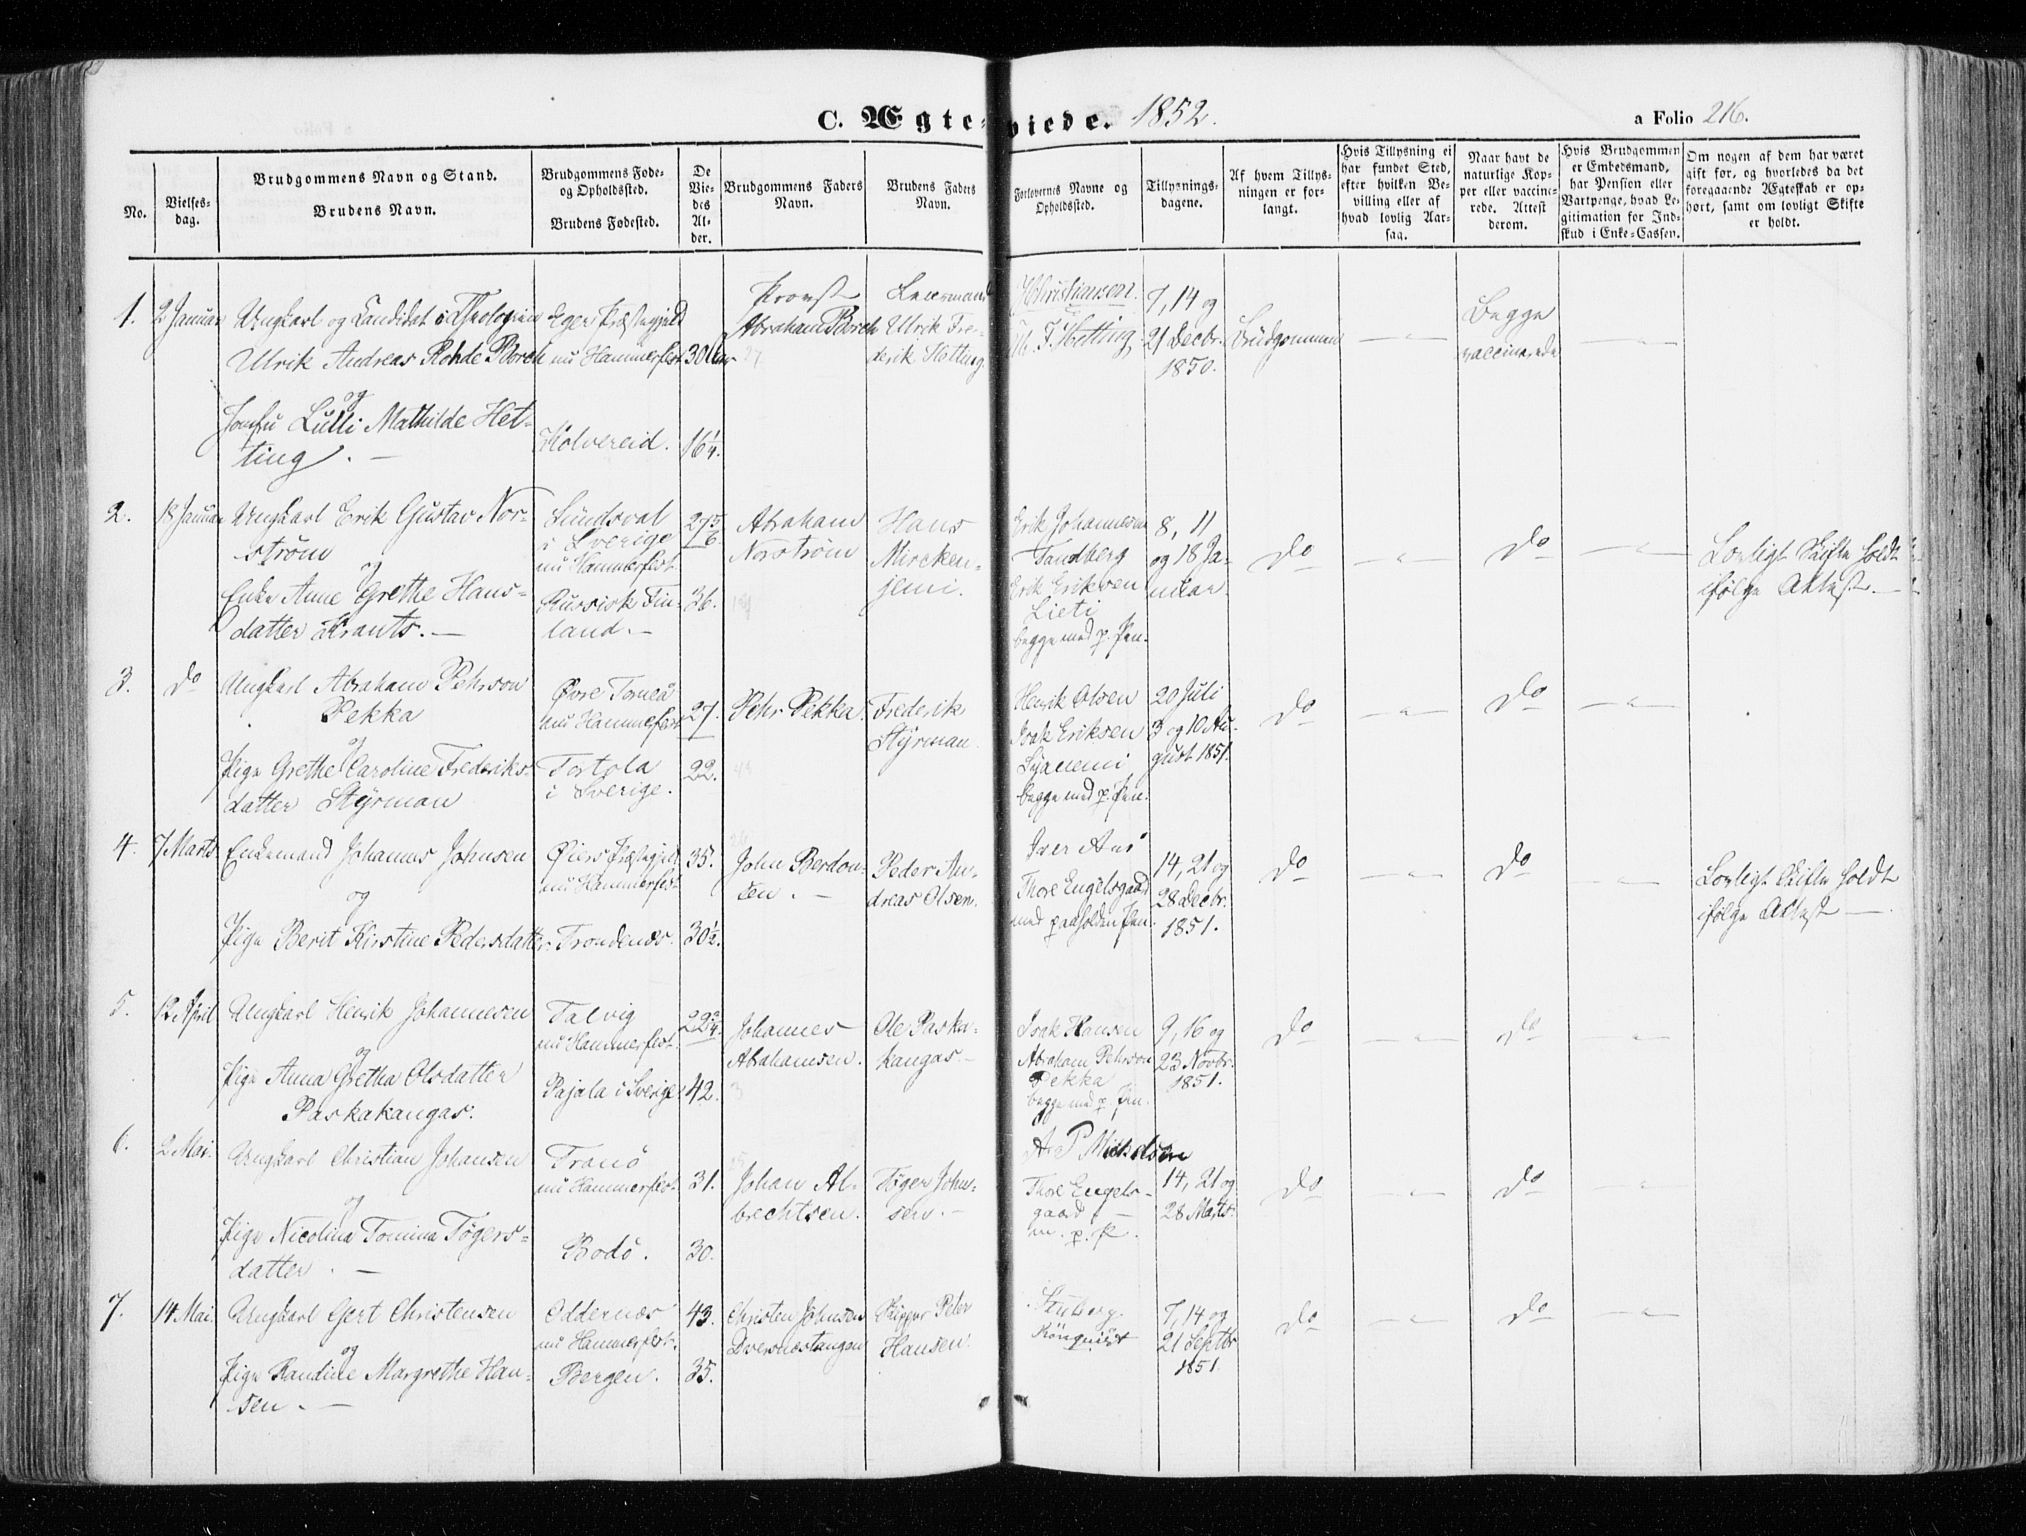 C. Ægteviede. 1852.
a Folio 216.
No.
Vielses-
dag.
Brudgommens Navn og Stand.
Brudens Navn.
Brudgommens Føde-
og Opholdssted.
Brudens Fødested.
De
Vie-
des
Al-
der.
Brudgommens Faders
Navn.
Brudens Faders
Navn.
Forlovernes Navne og
Opholdssted.
Tillysnings-
dagene.
Af hvem Tillys-
ningen er for-
langt.
Hvis Tillysning ei
har fundet Sted,
efter hvilken Be-
villing eller af
hvad lovlig Aar-
sag.
Naar havt de
naturlige Kop-
per eller vaccine-
rede. Attest
derom.
Hvis Brudgommen
er Embedsmand,
har Pension eller
Vartpenge, hvad Le-
gitimation for Ind-
skud i Enke-Cassen.
Om nogen af dem har været
gift før, og hvorledes da det
foregaaende Ægteskab er op-
hørt, samt om lovligt Skifte
er holdt.
1.
2 Januar
Ungkarl og Candidat i Theologien
Ulrik Andreas Rohde Borch
og
Jomfru Lulli Mathilde Het-
ting. —
Eger Præstegjeld
nu Hammerfest
Kolvereid.
30 Aar
16 1/4.
Provst
Abraham Borch
Lensmand
Ulrik Fre-
derik Hetting.
Christiansen.
F. Hetting
7, 14 og
21 Decbr.
1850.
Brudgommen
— " —
Begge
vaccinerede
— " —
2.
18 Januar
Ungkarl Erik Gustav Nor-
strøm
og
Enke Anne Grethe Hans-
datter Krants. —
Sundsval
i Sverige
nu Hammerfest
Russisk Fin-
land. —
27 5/6.
36.
Abraham
Norstrøm
Hans
Mircken-
jemi.
Erik Johannesen
Sandberg
Erik Eriksen
Lieti
begge med p. Pen.
8, 11
og 18 Ja-
nuar
Do
— " —
Do
— " —
Lovligt Skifte holdt
ifølge Attest. —
3.
Do
Ungkarl Abraham Pehrson
Pekka
og
Pige Grethe Caroline Frederiks-
datter Styrman
Øvre Torneå
nu Hammerfest
Tortola
i Sverige.
27.
22.
Pehr Pekka
Frederik
Styrman.
Henrik Olsen
Isak Eriksen
begge med p. Pen.
20 Juli
3 og 10 Au-
gust 1851.
Do
— " —
Do
— " —
4.
7 Marts
Enkemand Johannes Johnsen
og
Pige Berit Kirstine Pedersdatter
Øiers Præstegjeld
nu Hammerfest
Trondenæs.
35.
30 1/2.
John Berdon-
sen. —
Peder An-
dreas Olsen.
Iver Aas
Thore Engelsgaard
med paaholden Pen.
14, 21 og
28 Decbr.
1851.
Do
— " —
Do
— " —
Lovligt Skifte holdt
ifølge Attest —
5.
12 April
Ungkarl Henrik Johannesen
og
Pige Anna Gretha Olsdatter
Paskakangas.
Talvig
nu Hammerfest.
Pajala i Sverige
22 3/4.
42.
Johannes
Abrahamsen.
Ole Paska-
kangas —
Isak Hansen
Abraham Pehrson
Pekka
begge med p. Pen.
9, 16 og
23 Novbr.
1851.
Do
— " —
Do
— " —
6.
2 Mai.
Ungkarl Christian Johansen
og
Pige Nicolina Tomina Tøgers-
datter. —
Tranö
nu Hammerfest.
Bodö.
31.
30.
Johan Al-
brechtsen.
Tøger John-
sen. —
Thore Engels-
gaard —
m. p. P.
14, 21 og
28 Marts.
Do
— " —
Do
— " —
7.
14 Mai.
Ungkarl Gert Christensen
og
Pige Randine Margrethe Han-
sen. —
Oddernæs
nu Hammerfest.
Bergen.
43.
35.
Christen Johnsen
Dversnæstangen
Peter
Hansen.
Rönquist
7, 14 og
21 Septbr
1851.
Do
— " —
Do
— " —